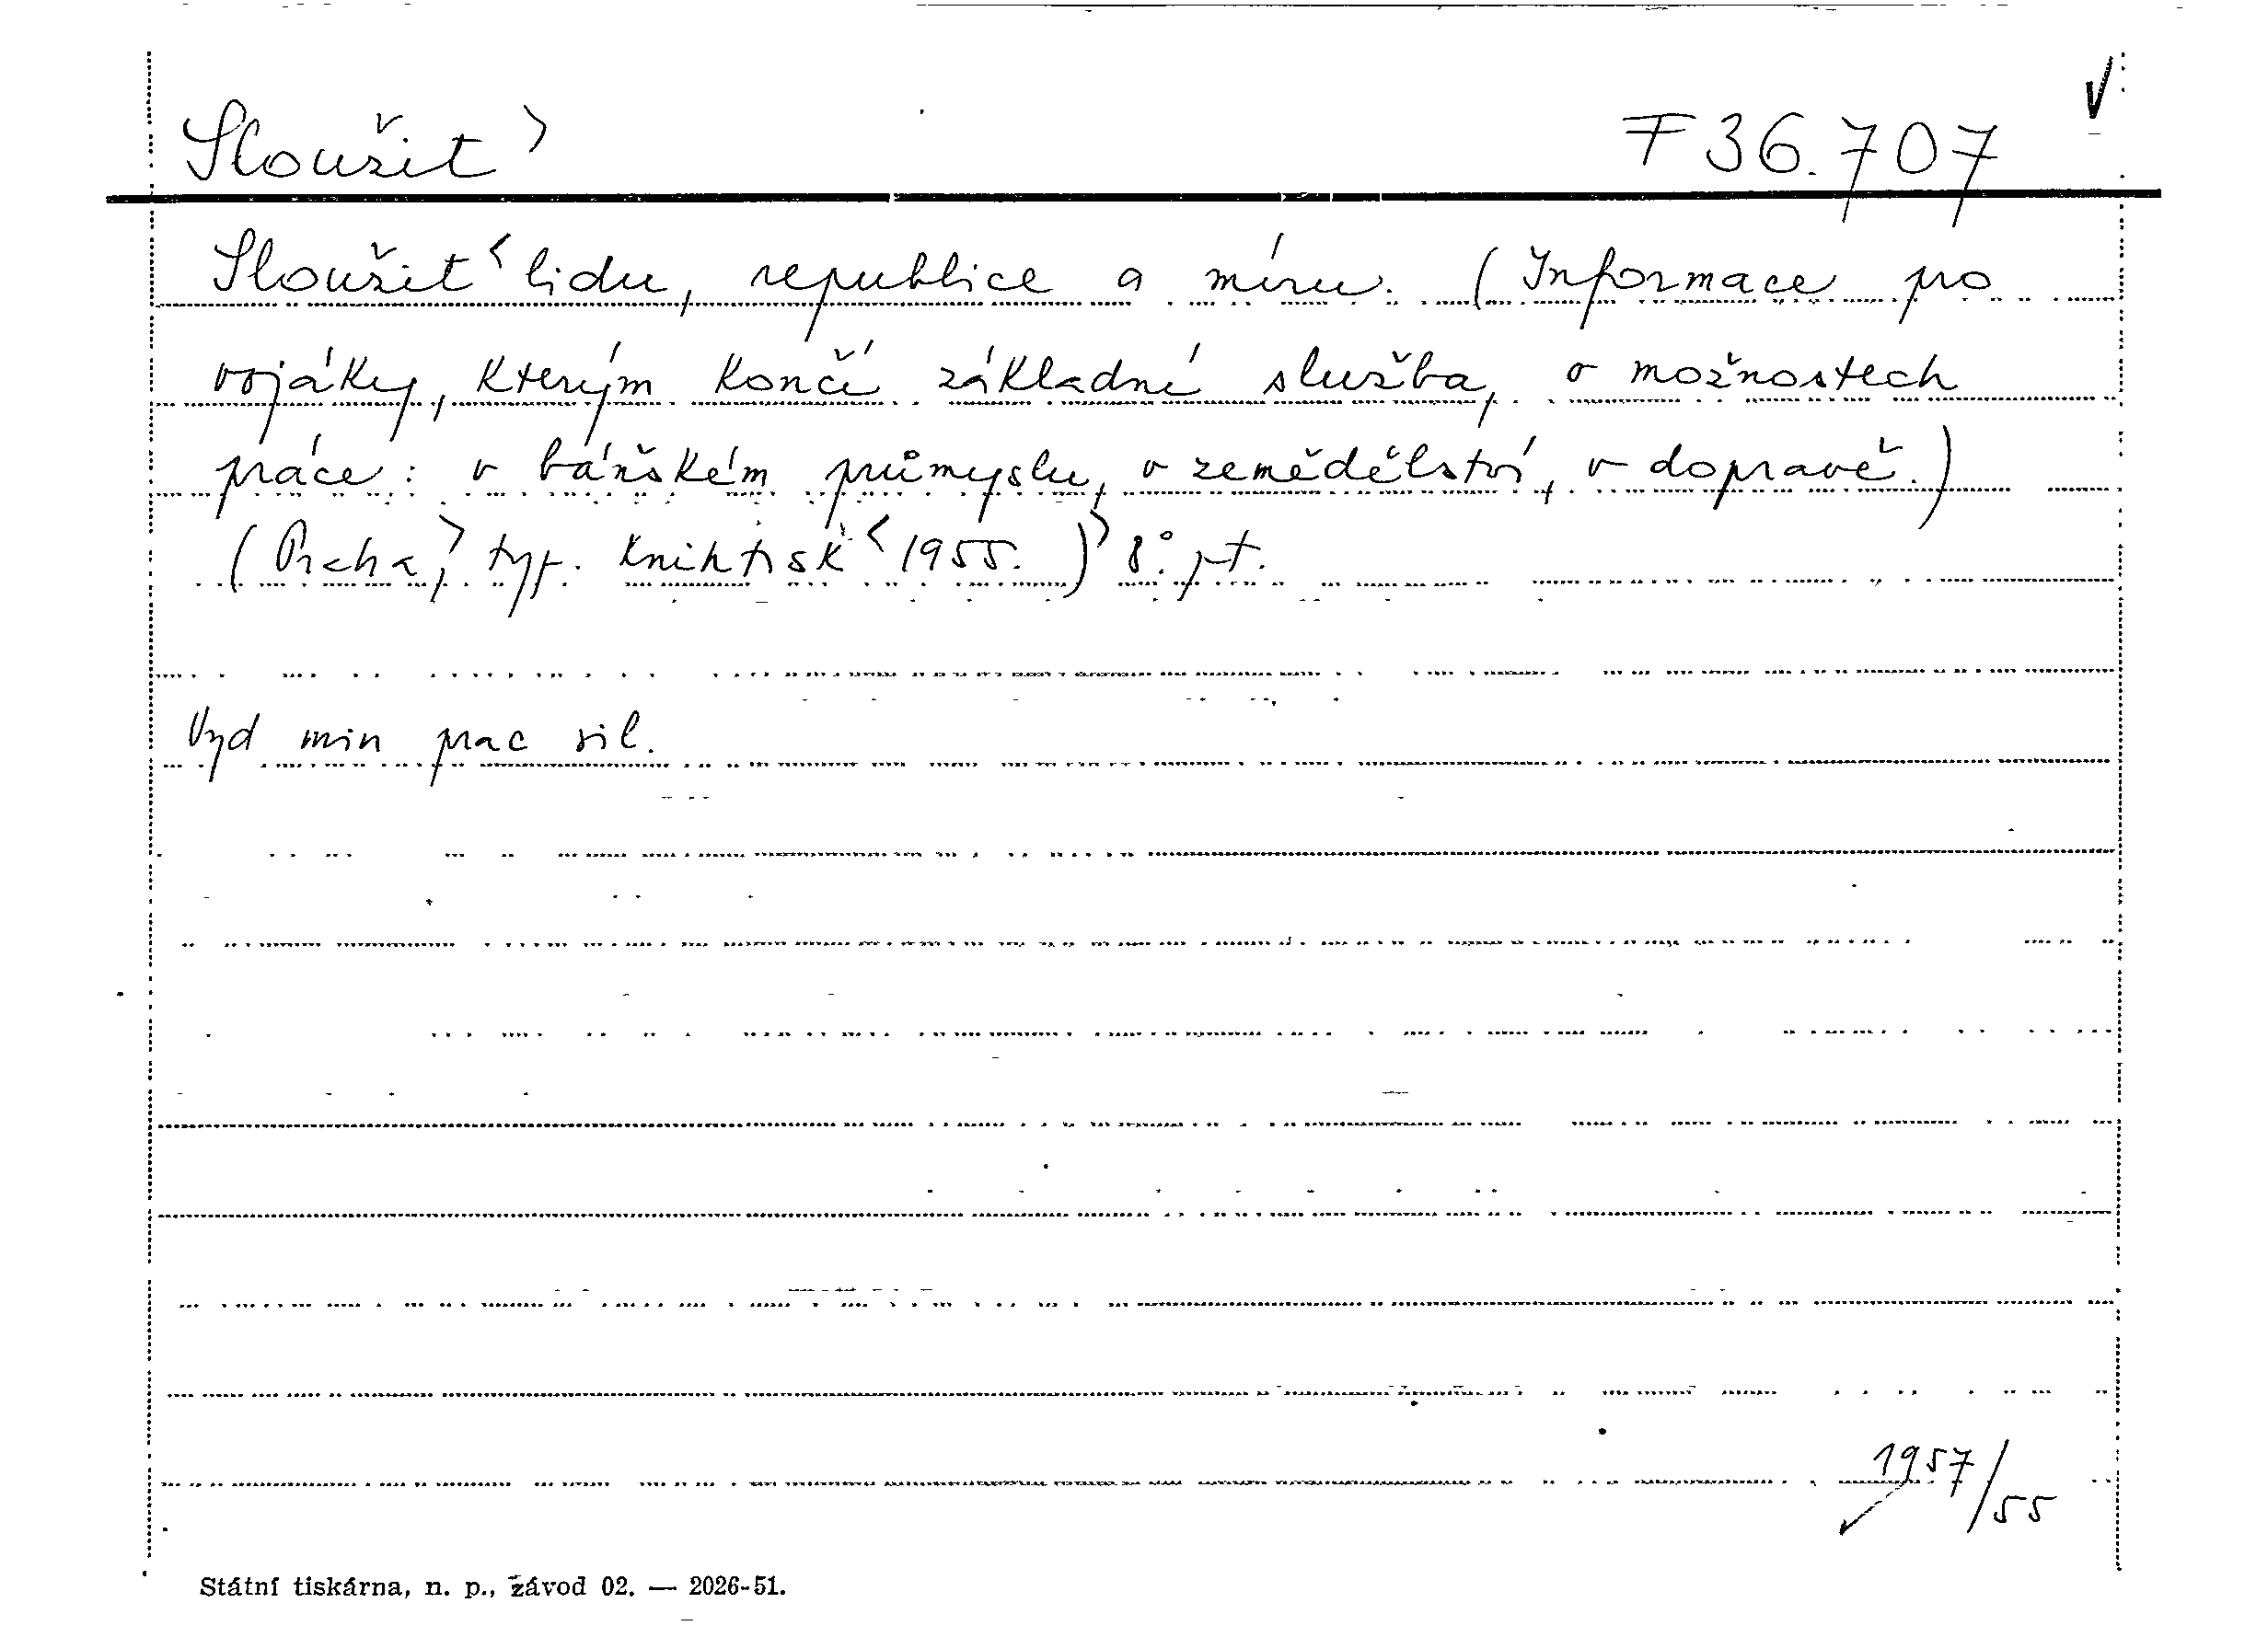 Sloužit> F 36.707
Sloužit< lidu, republice a míru. (Informace pro
vojáky, kterým končí základní služba, o možnostech
práce: v báňském průmyslu, v zemědělství, v dopravě.)
(Praha,> typ. Knihtisk< 1955.)> 8°. pt.
Vyd min prac sil.
1957/55
Státní tiskárna, n. p., závod 02. — 2026-51.